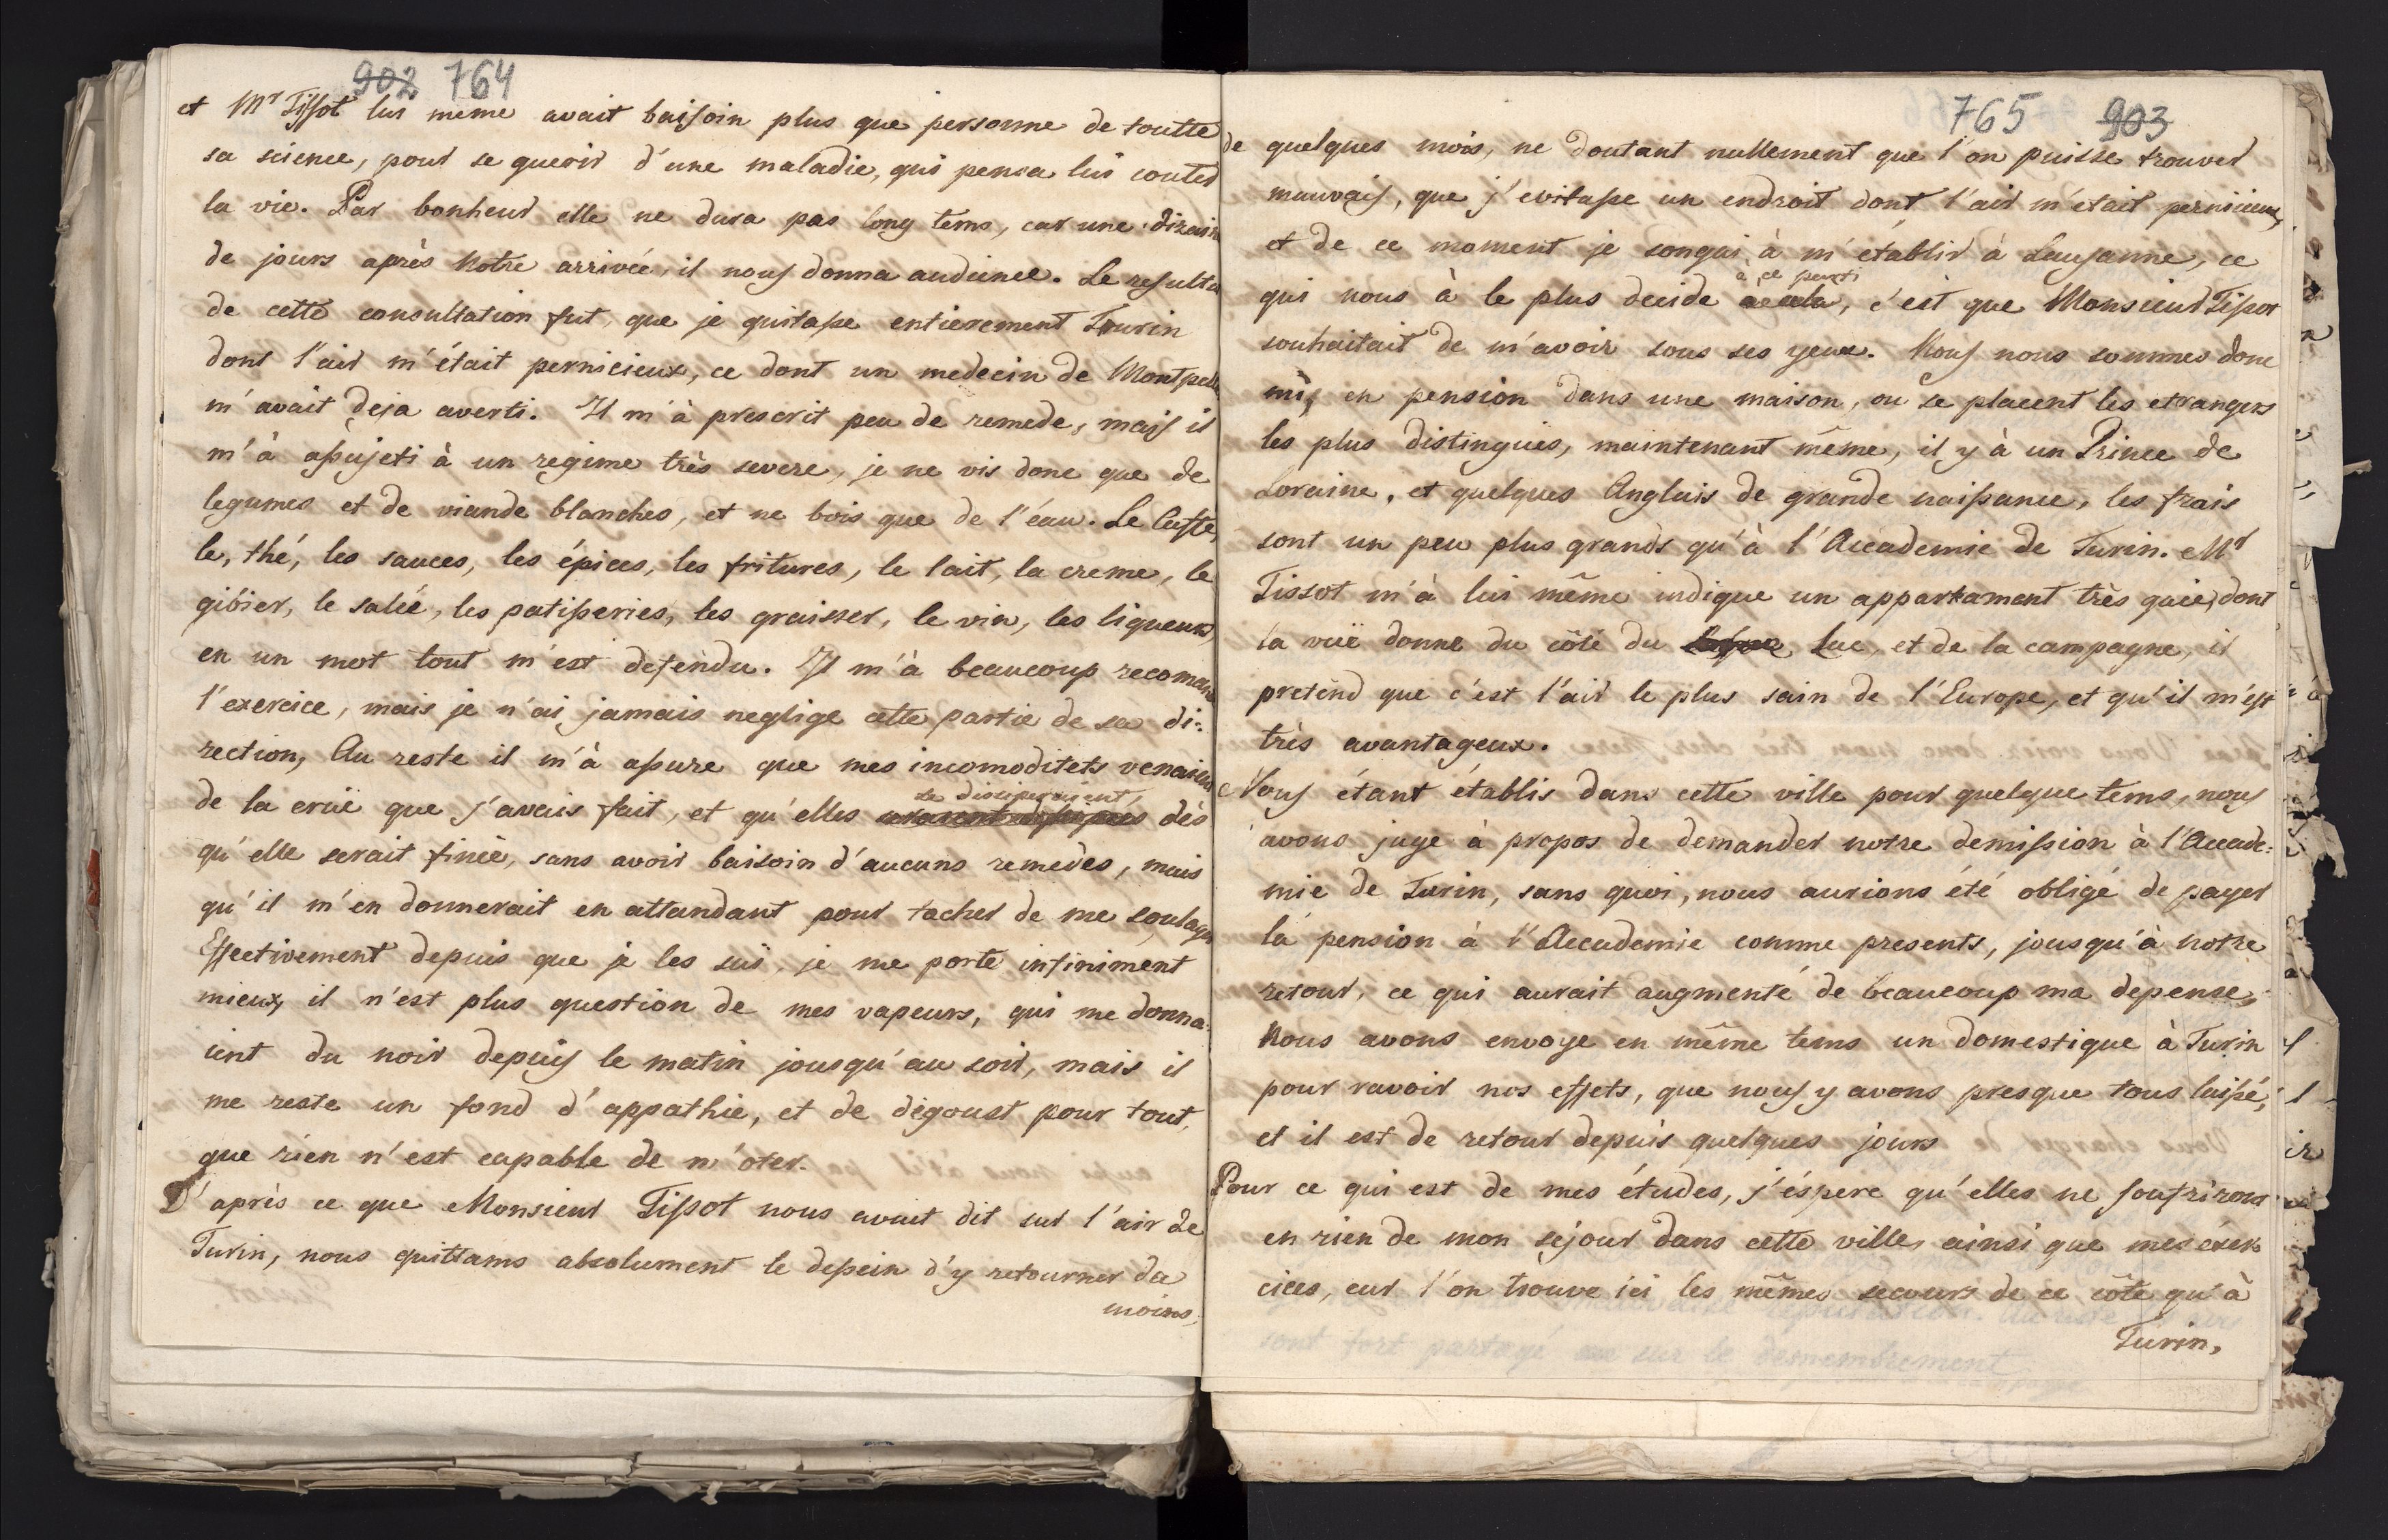 902 764
et Mr Tissot lui meme avait baisoin plus que personne de toutte
sa science, pour se guerir d'une maladie, qui pensa lui couter
la vie. Par bonheur elle ne dura pas long tems, car une dizain
de jours après notre arrivée, il nous donna audience. Le resulta
de cette consultation fut, que je quitasse entierement Turin
dont l'air m'était pernicieux, ce dont un medecin de Montpell
m'avait deja averti. Il m'à prescrit peu de remede, mais il
m'à assujeti à un regime très severe, je ne vis donc que de
legumes et de viande blanches, et ne bois que de l'éau. Le Caffe,
le, thé, les sauces, les épices, les fritures, le lait, la creme, le
gibier, le salée, les patisseries, les graisses, le vin, les liqueurs,
en un mot tout m'est defendu. Il m'à beaucoup recomand
l'exercice, mais je n'ai jamais neglige cette partie de sa di:
rection, Au reste il m'à assure que mes incomoditets venaient
de la crüe que j'avais fait, et qu'elles se dissiperaient dès
qu'elle serait finiè, sans avoir baisoin d'aucuns remedes, mais
qu'il m'en donnerait en attandant pour tacher de me soulager
Effectivement depuis que je les sui, je me porte infiniment
mieux, il n'est plus question de mes vapeurs, qui me donna:
ient du noir depuis le matin jousqu'au soir, mais il
me reste un fond d'appathie, et de dégoust pour tout,
que rien n'est capable de m'oter.
D'après ce que Monsieur Tissot nous avait dit sur l'air de
Turin, nous quittams absolument le dessein d'y retourner de
moins,
765 903
de quelques mois, ne doutant nullement que l'on puisse trouver
mauvais, que j'evitasse un endroit dont l'air m'était pernicieux,
et de ce moment je songai à m'établir à Lausanne, ce
qui nous à le plus decide à ce parti, c'est que Monsieur Tissot
souhaitait de m'avoir sous ses yeux. Nous nous sommes donc
mis en pension dans une maison, ou se placent les etrangers
les plus distingués, maintenant même, il y à un Prince de
Loraine, et quelques Anglais de grande naissance, les frais
sont un peu plus grands qu'à l'Accademie de Turin. Mr
Tissot m'à lui même indique un appartament très gaie, dont
la vuë donne du côté du Lac, et de la campagne, il
pretend que c'est l'air le plus sain de l'Europe, et qu'il m'est
très avantageux.
Nous étant établis dans cette ville pour quelque tems, nous
avons juge à propos de demander notre demission à l'Accade:
mie de Turin, sans quoi, nous aurions été obligé de payer
la pension à l'Accademie comme presents, jousqu'à notre
retour, ce qui aurait augmenté de beaucoup ma depense,
Nous avons envoye en même tems un domestique à Turin
pour ravoir nos effets, que nous y avons presque tous laissé,
et il est de retour depuis quelques jours
Pour ce qui est de mes études, j'éspere qu'elles ne soufriront
en rien de mon sejour dans cette ville, ainsi que mes éxer
cices, car l'on trouve ici les mêmes secours de ce côte qu'à
Turin,